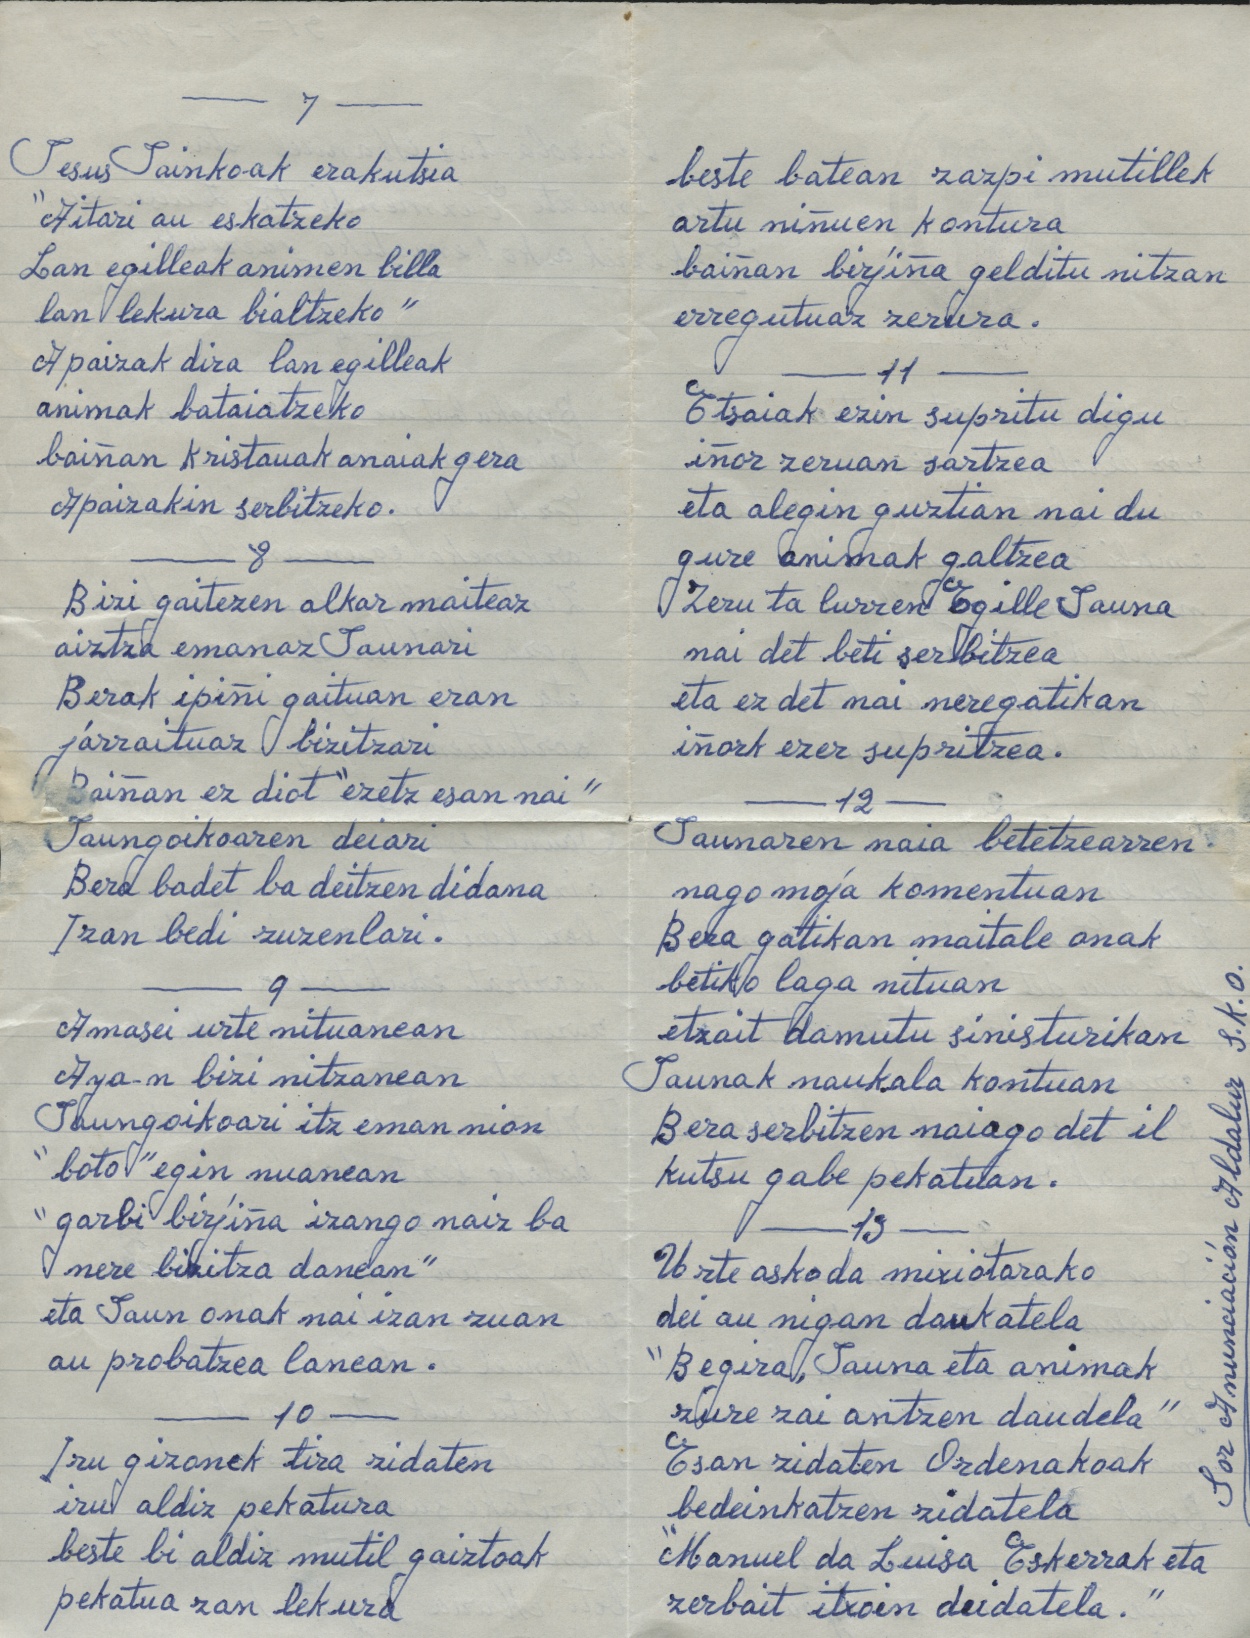 — 7 —
Jesus Jainkoak erakutsia
"Aitari au eskatzeko
Lan egilleak animen billa
lan lekura bialtzeko"
Apaizak dira lan egilleak
animak bataiatzeko
baiñan kristauak anaiak gera
Apaizakin serbitzeko.
— 8 —
Bizi gaitezen alkar maiteaz
aiztza emanaz Jaunari
Berak ipiñi gaituan eran
járraituaz bizitzari
Baiñan ez diot "ezetz esan nai"
Jaungoikoaren deiari
Bera badet ba deitzen didana
Izan bedi zuzenlari.
— 9 —
Amasei urte nituanean
Aya-n bizi nitzanean
Jaungoikoari itz eman nion
"boto" egin nuanean
"garbi birjiña izango naiz ba
nere bizitza danean"
eta Jaun onak nai izan zuan
au probatzea lanean.
— 10 —
Iru gizonek tira zidaten
iru aldiz pekatura
beste bi aldiz mutil gaiztoak
pekatua zan lekura
beste batean zazpi mutillek
artu niñuen kontura
baiñan birjiña gelditu nitzan
erregutuaz zerura.
— 11 —
Etsaiak ezin supritu digu
iñor zeruan sartzea
eta alegin guztian nai du
gure animak galtzea
Zeru ta lurren Egille Jauna
nai det beti serbitzea
eta ez det nai neregatikan
iñork ezer supritzea.
— 12 —
Jaunaren naia betetzearren
nago moja komentuan
Bera gatikan maitale onak
betiko laga nituan
etzait damutu sinisturikan
Jaunak naukala kontuan
Bera serbitzen naiago det il
kutsu gabe pekatuan.
— 13 —
Urte asko da mixiotarako
dei au nigan daukatela
"Begira, Jauna eta animak
zure zai antzen daudela"
Esan zidaten Ordenakoak
bedeinkatzen zidatela
"Manuel da Luisa Eskerrak eta
zerbait itxoin deidatela."
Sor Anunciación Aldalur S.K.O.